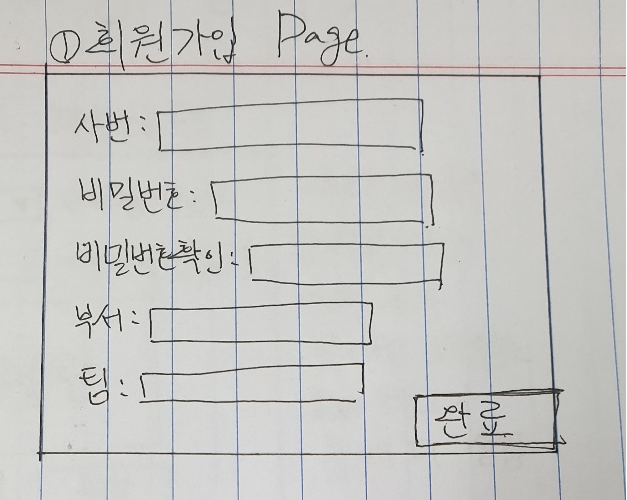 ① 회원가입 Page.
사번:
비밀번호:
비밀번호확인:
부서:
팀:
완료